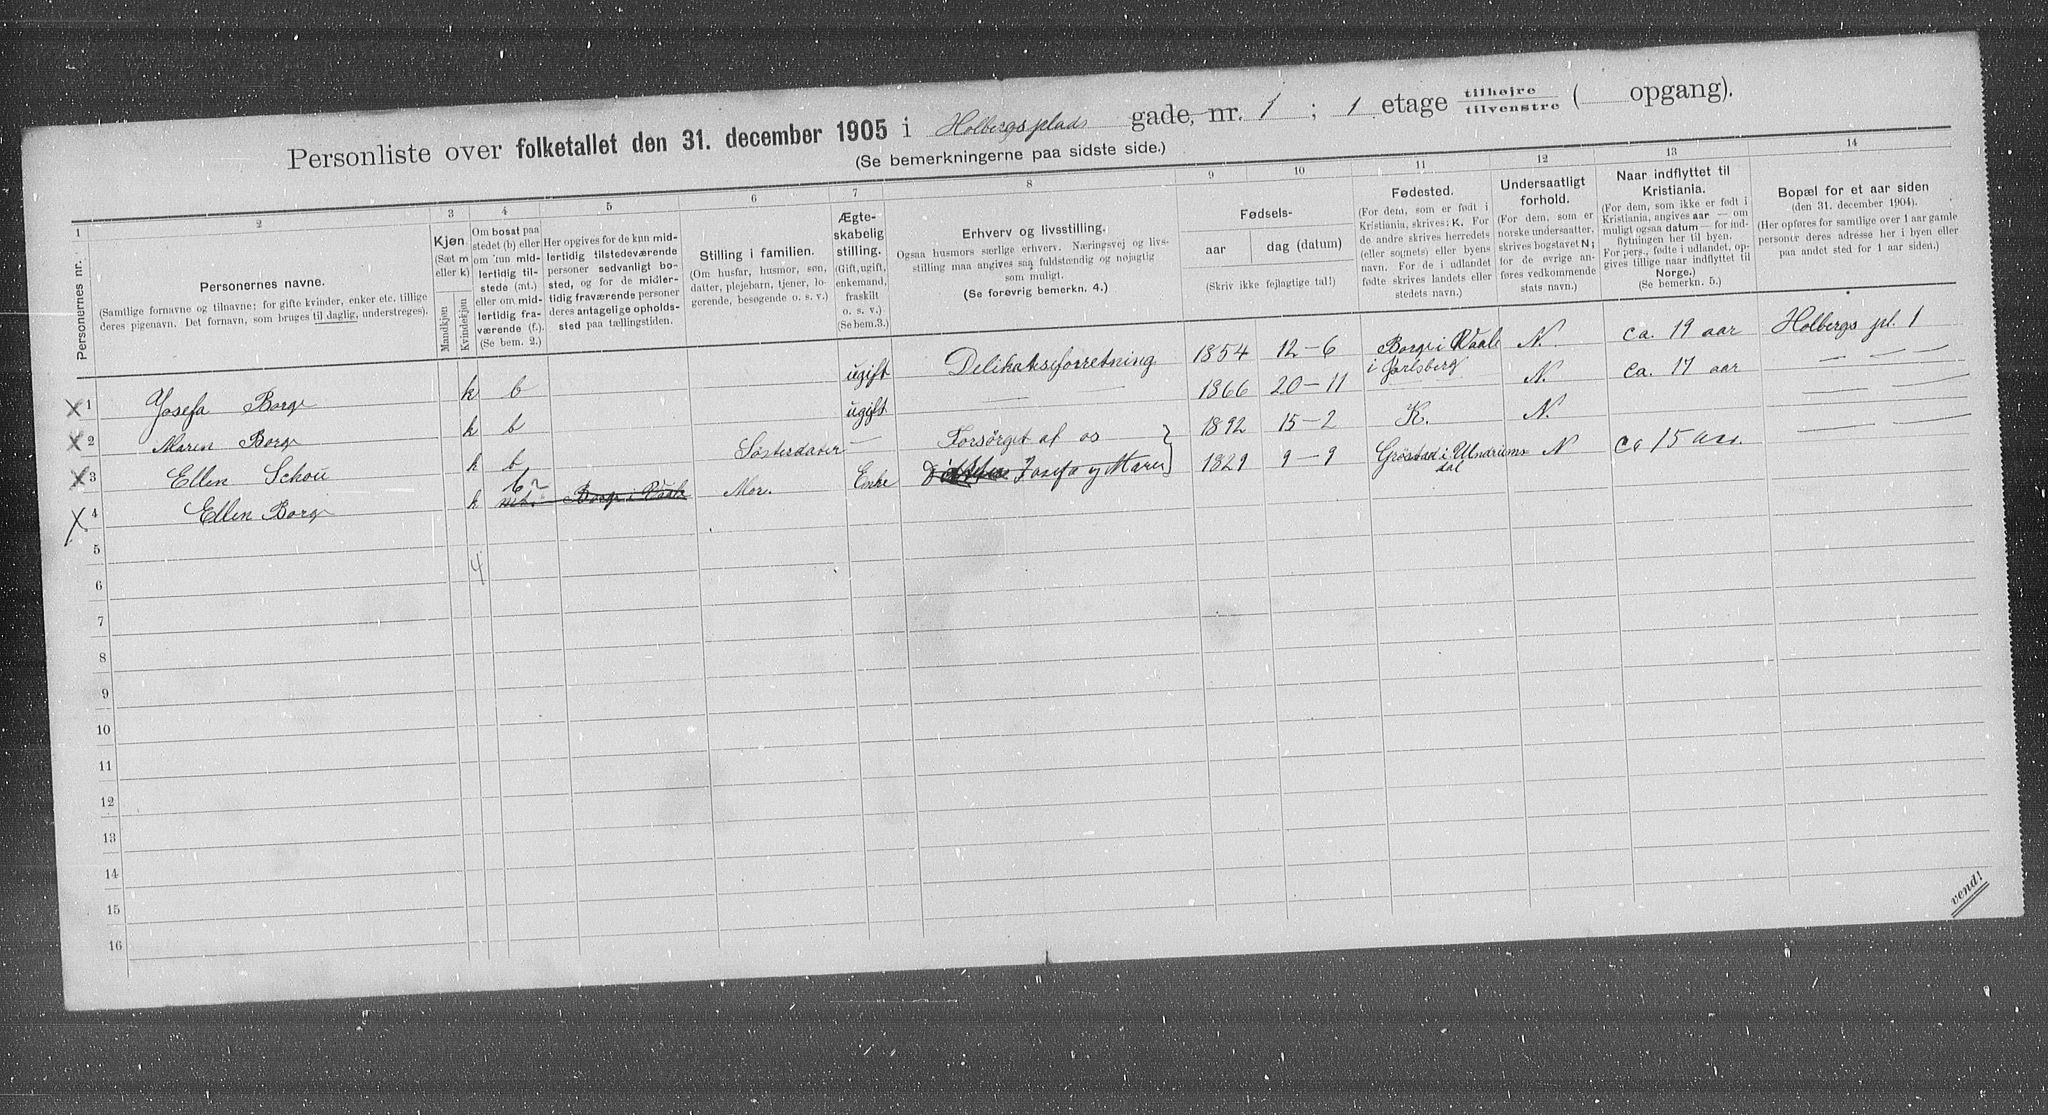 Personliste over folketallet den 31. december 1905 i Holbergsplads gade, nr. 1 ; 1 etage tilhøjre tilvenstre ( opgang).
(Se bemerkningerne paa sidste side.)
1 2 3 4 5 6 7 8 9 10 11 12 13 14
Personernes nr.
Personernes navne.
(Samtlige fornavne og tilnavne; for gifte kvinder, enker etc. tillige
deres pigenavn. Det fornavn, som bruges til daglig, understreges).
Kjøn
(Sæt m
eller k)
Mandkjøn
Kvindekjøn
Om bosat paa
stedet (b) eller
om kun mid-
lertidig til-
stede (mt.)
eller om mid-
lertidig fra-
værende (f.).
(Se bem. 2.)
Her opgives for de kun mid-
lertidig tilstedeværende
personer sedvanligt bo-
sted, og for de midler-
tidig fraværende personer
deres antagelige opholds-
sted paa tællingstiden.
Stilling i familien.
(Om husfar, husmor, søn,
datter, plejebarn, tjener, lo-
gerende, besøgende o. s. v.)
Ægte-
skabelig
stilling.
(Gift, ugift,
enkemand,
fraskilt
o. s. v.)
(Se bem.3.)
Erhverv og livsstilling.
Ogsaa husmors særlige erhverv. Næringsvej og livs-
stilling maa angives saa fuldstændig og nøjagtig
som muligt.
(Se forøvrig bemerkn. 4.)
Fødsels-
aar dag (datum)
(Skriv ikke fejlagtige tal!)
Fødested.
(For dem, som er født i
Kristiania, skrives: K. For
de andre skrives herredets
(eller sognets) eller byens
navn. For de i udlandet
fødte skrives landets eller
stedets navn.)
Undersaatligt
forhold.
(For dem, som er
norske undersaatter,
skrives bogstavet N;
for de øvrige an-
føres vedkommende
stats navn.)
Naar indflyttet til
Kristiania.
(For dem, som ikke er født i
Kristiania, angives aar — om
muligt ogsaa datum — for ind-
flytningen her til byen.
For pers., født i udlandet, op-
gives tillige naar indflyttet til
Norge.)
(Se bemerkn. 5.)
Bopæl for et aar siden
(den 31. december 1904).
(Her opføres for samtlige over 1 aar gamle
personer deres adresse her i byen eller
paa andet sted for 1 aar siden.)
X 1 Josefa Borge k b ugift Delikatseforretning 1854 12-6 Borge i Vaale i Jarlsberg N. ca. 19 aar Holbergs pl. 1
X 2 Maren Borge k b ugift — 1866 20-11 N. ca. 17 aar — — —
X 3 Ellen Schou k b Søsterdatter — Forsørget af os 1892 15-2 K. N. — —
X 4 Ellen Borge k b mt. Borge i Vaale Mor. Enke Josefa og Maren 1829 9-9 i Undrums dal N ca 15 aar. — — —
5
4
6
7
8
9
10
11
12
13
14
15
16
vend!